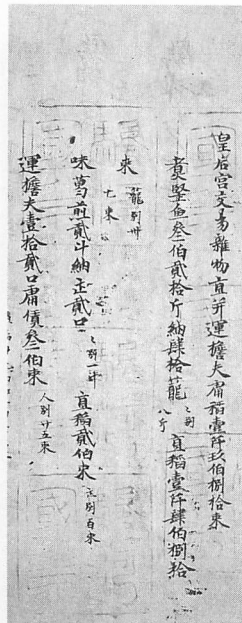 皇后宮交易雜物直并運擔夫庸稻壹阡玖伯捌拾束
煮堅魚叁伯貳拾斤納肆拾籠〻別八斤直稻壹阡肆伯捌拾
束籠別卅七束
味葛煎貳斗納缶貳口〻別一斗直稻貳伯束缶別百束
運擔夫壹拾貳口庸價叁伯束人別廿五束